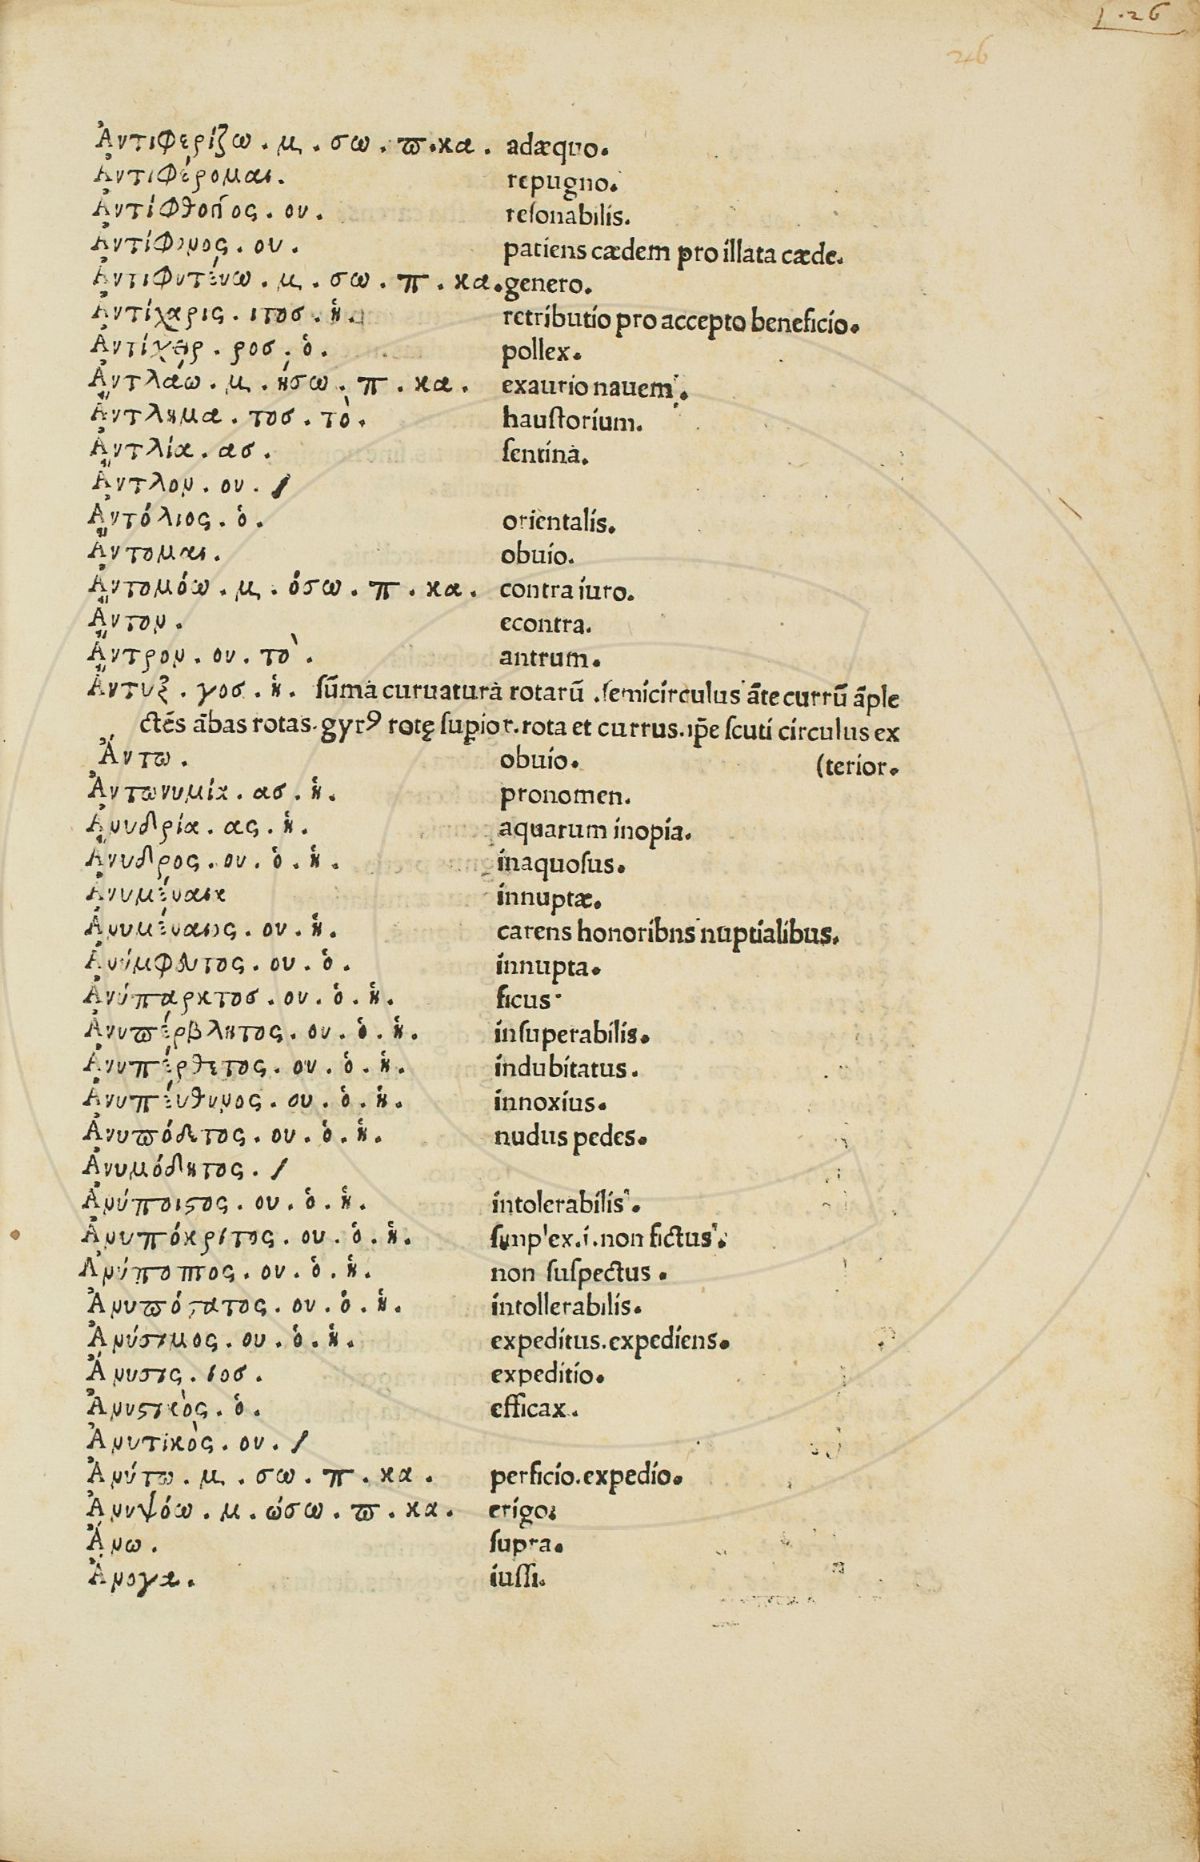 f. 26
26
Ἀντιφερίζω . μ . σω . ϖ . κα . adæquo.
Ἀντιφέρομαι. repugno.
Ἀντίφθογγος . ου . reſonabilis.
Ἀντίφονος . ου . patiens cædem pro illata cæde.
Ἀντιφυτεύω . μ . σω . π . κα . genero.
Ἀντίχαρις . ιτοσ . ἡ . retributio pro accepto beneficio.
Ἀντίχειρ . ροσ . ὁ . pollex.
Ἀντλάω . μ . ήσω . π . κα . exaurio nauem.
Ἄντλημα . τοσ . τὸ . hauſtorium.
Ἀντλία . ασ . ſentina.
Ἄντλον . ου . /
Ἀντόλιος . ὁ . orientalis.
Ἄντομαι . obuio.
Ἀντομόω . μ . όσω . π . κα . contra iuro.
Ἄντον . econtra.
Ἄντρον . ου . τὸ . antrum.
Ἄντυξ . γοσ . ἡ . ſūma curuatura rotarū .ſemicirculus āte currū āple
ctēs ābas rotas. gyrꝰ rotę ſuꝑior. rota et currus. ip̄e ſcuti circulus ex
Ἄντω . obuio. (terior.
Ἀντωνυμία . ασ . ἡ . pronomen.
Ἀνυδρία . ας . ἡ . aquarum inopia.
Ἄνυδρος . ου . ὁ . ἡ . inaquoſus.
Ἀνυμέναια innuptæ.
Ἀνυμέναιος . ου . ἡ . carens honoribns nuptialibus.
Ἀνύμφευτος . ου . ὁ . innupta.
Ἀνύπαρκτοσ . ου . ὁ . ἡ . ficus
Ἀνυϖέρβλητος . ου . ὁ . ἡ . inſuperabilis.
Ἀνυπέρθετος . ου . ὁ . ἡ . indubitatus .
Ἀνυπεύθυνος . ου . ὁ . ἡ . innoxius.
Ἀνυϖόδετος . ου . ὁ . ἡ . nudus pedes.
Ἀνυμόδητος . /
Ἀνύποιστος . ου . ὁ . ἡ . intolerabilis.
Ἀνυπόκριτος . ου . ὁ . ἡ . ſimplex.i.non fictus.
Ἀνύποπτος . ου . ὁ . ἡ . non ſuſpectus .
Ἀνυϖόστατος . ου . ὁ . ἡ . intollerabilis.
Ἀνύσιμος . ου . ὁ . ἡ . expeditus.expediens.
Ἄνυσις . ιοσ . expeditio.
Ἀνυστικὸς . ὁ . efficax .
Ἀνυτικὸς . ου . /
Ἀνύτω . μ . σω . π . κα . perficio.expedio.
Ἀνυψόω . μ . ώσω . ϖ . κα . erigo:
Ἄνω . ſupra.
Ἄνογα . iuſſi.